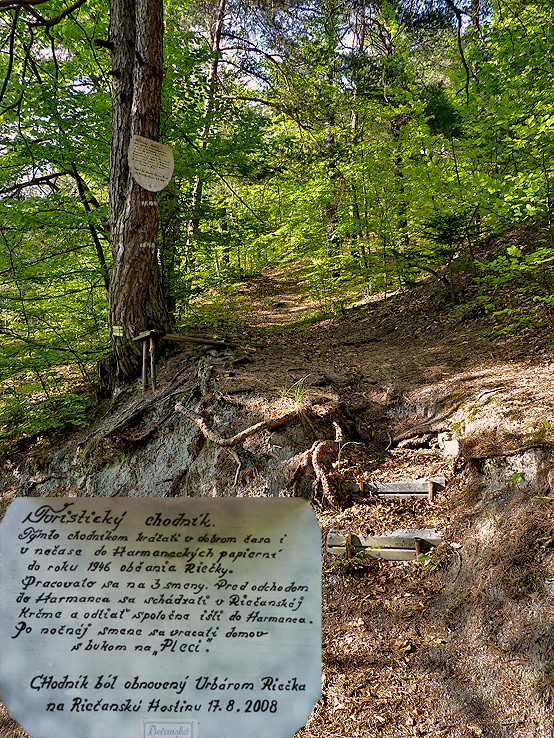 Túristický chodník.
Týmto chodníkom kráčali v dobrom čase i
v nečase do Harmaneckých papierní
do roku 1946 občania Riečky.
Pracovalo sa na 3 smeny. Pred odchodom
do Harmanca sa schádzali v Riečanskej
Krčme a odtiaľ spoločne išli do Harmanca.
Po nočnej smene sa vracali domov
s bukom na „Pleci".
CHodník bol obnovený Urbárom Riečka
na Riečanskú Hostinu 17. 8. 2008
Riečanská